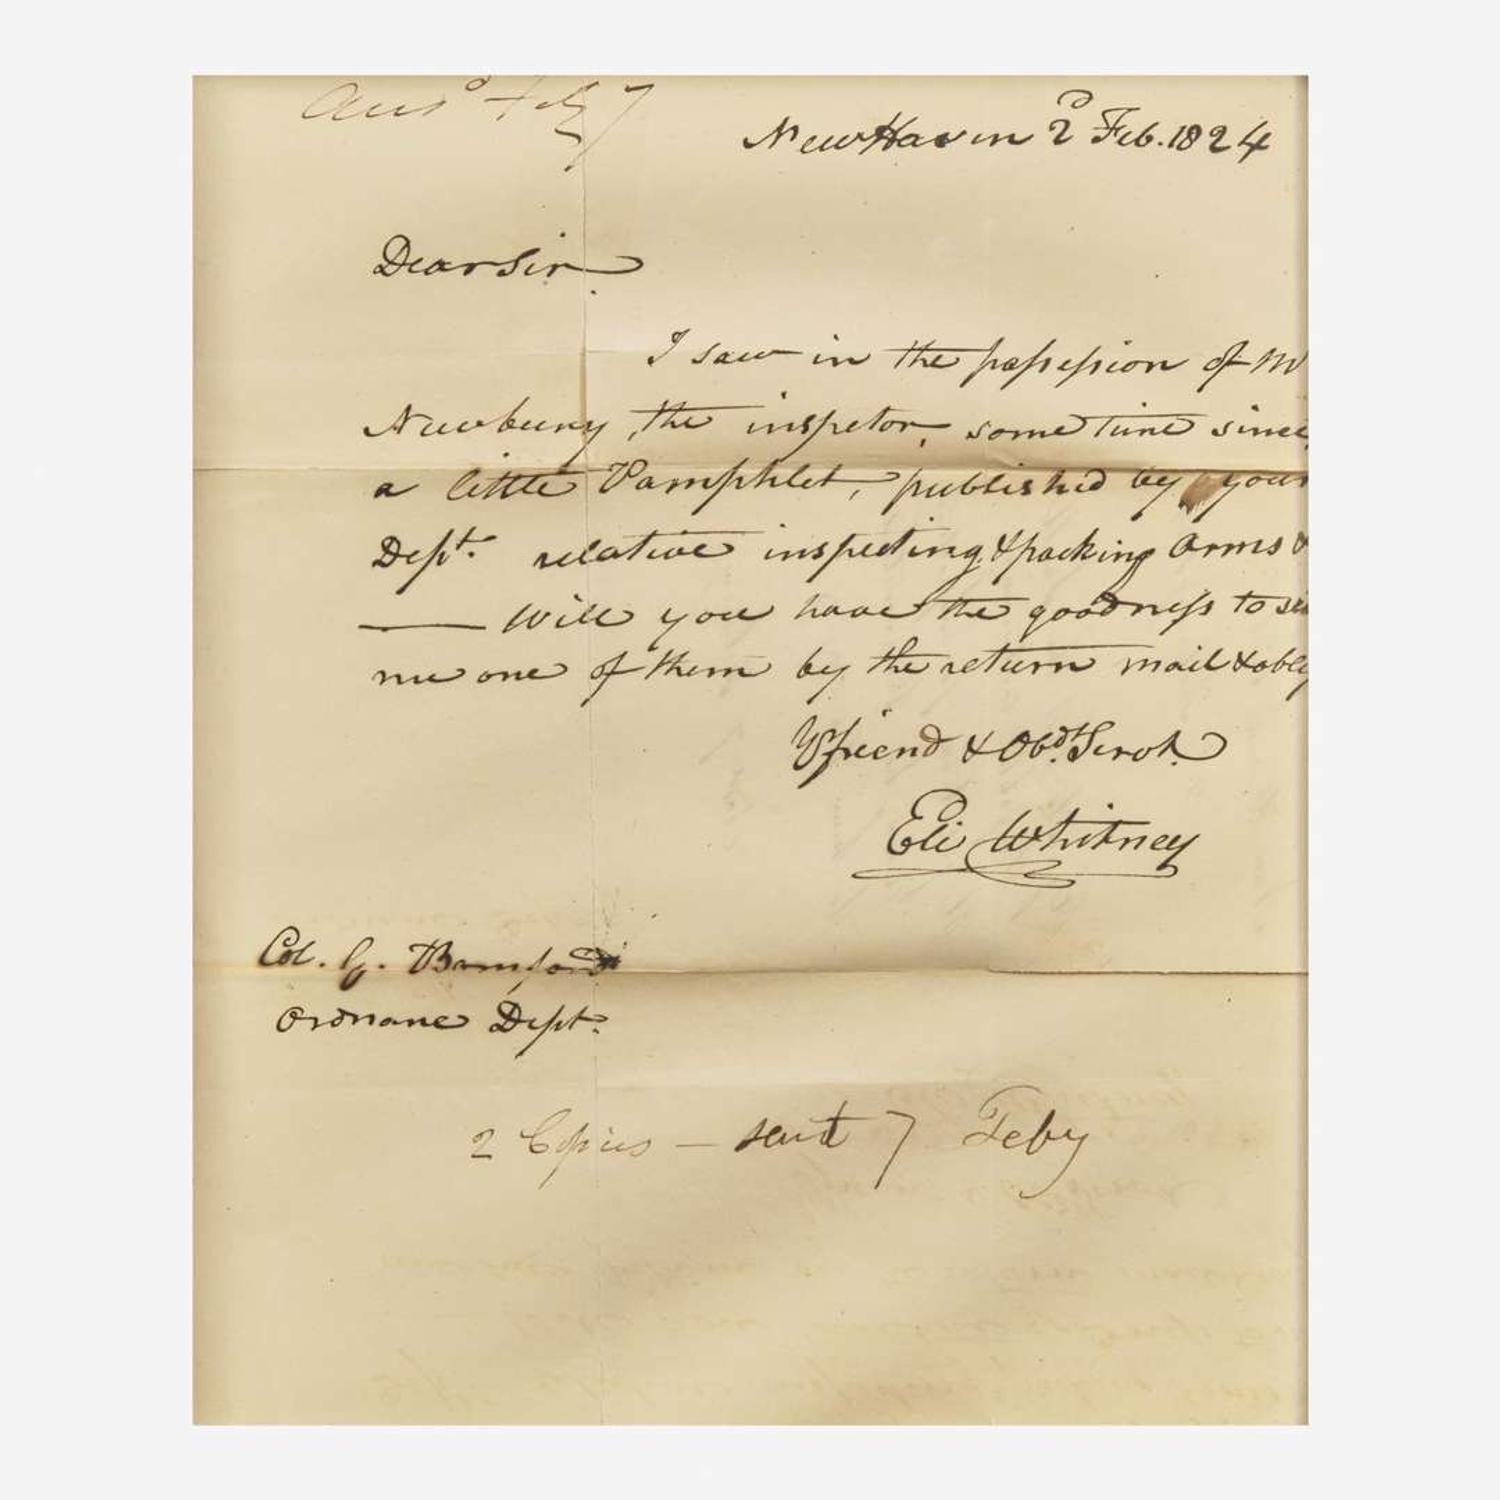 Ansd Feby 7
New Haven 2d Feb. 1824
Dear Sir.
I saw in the possession of M
Newbury, the inspetor, some time since
a little Pamphlet, published by your
Dept. relative inspecting & packing Arms &
— Will you have the goodness to se
me one of them by the return mail & oblig
Yr friend & Obdt. Servt.
Eli Whitney
Col. G. Bomford
Ordnane Dept.
2 Copies — sent 7 Feby